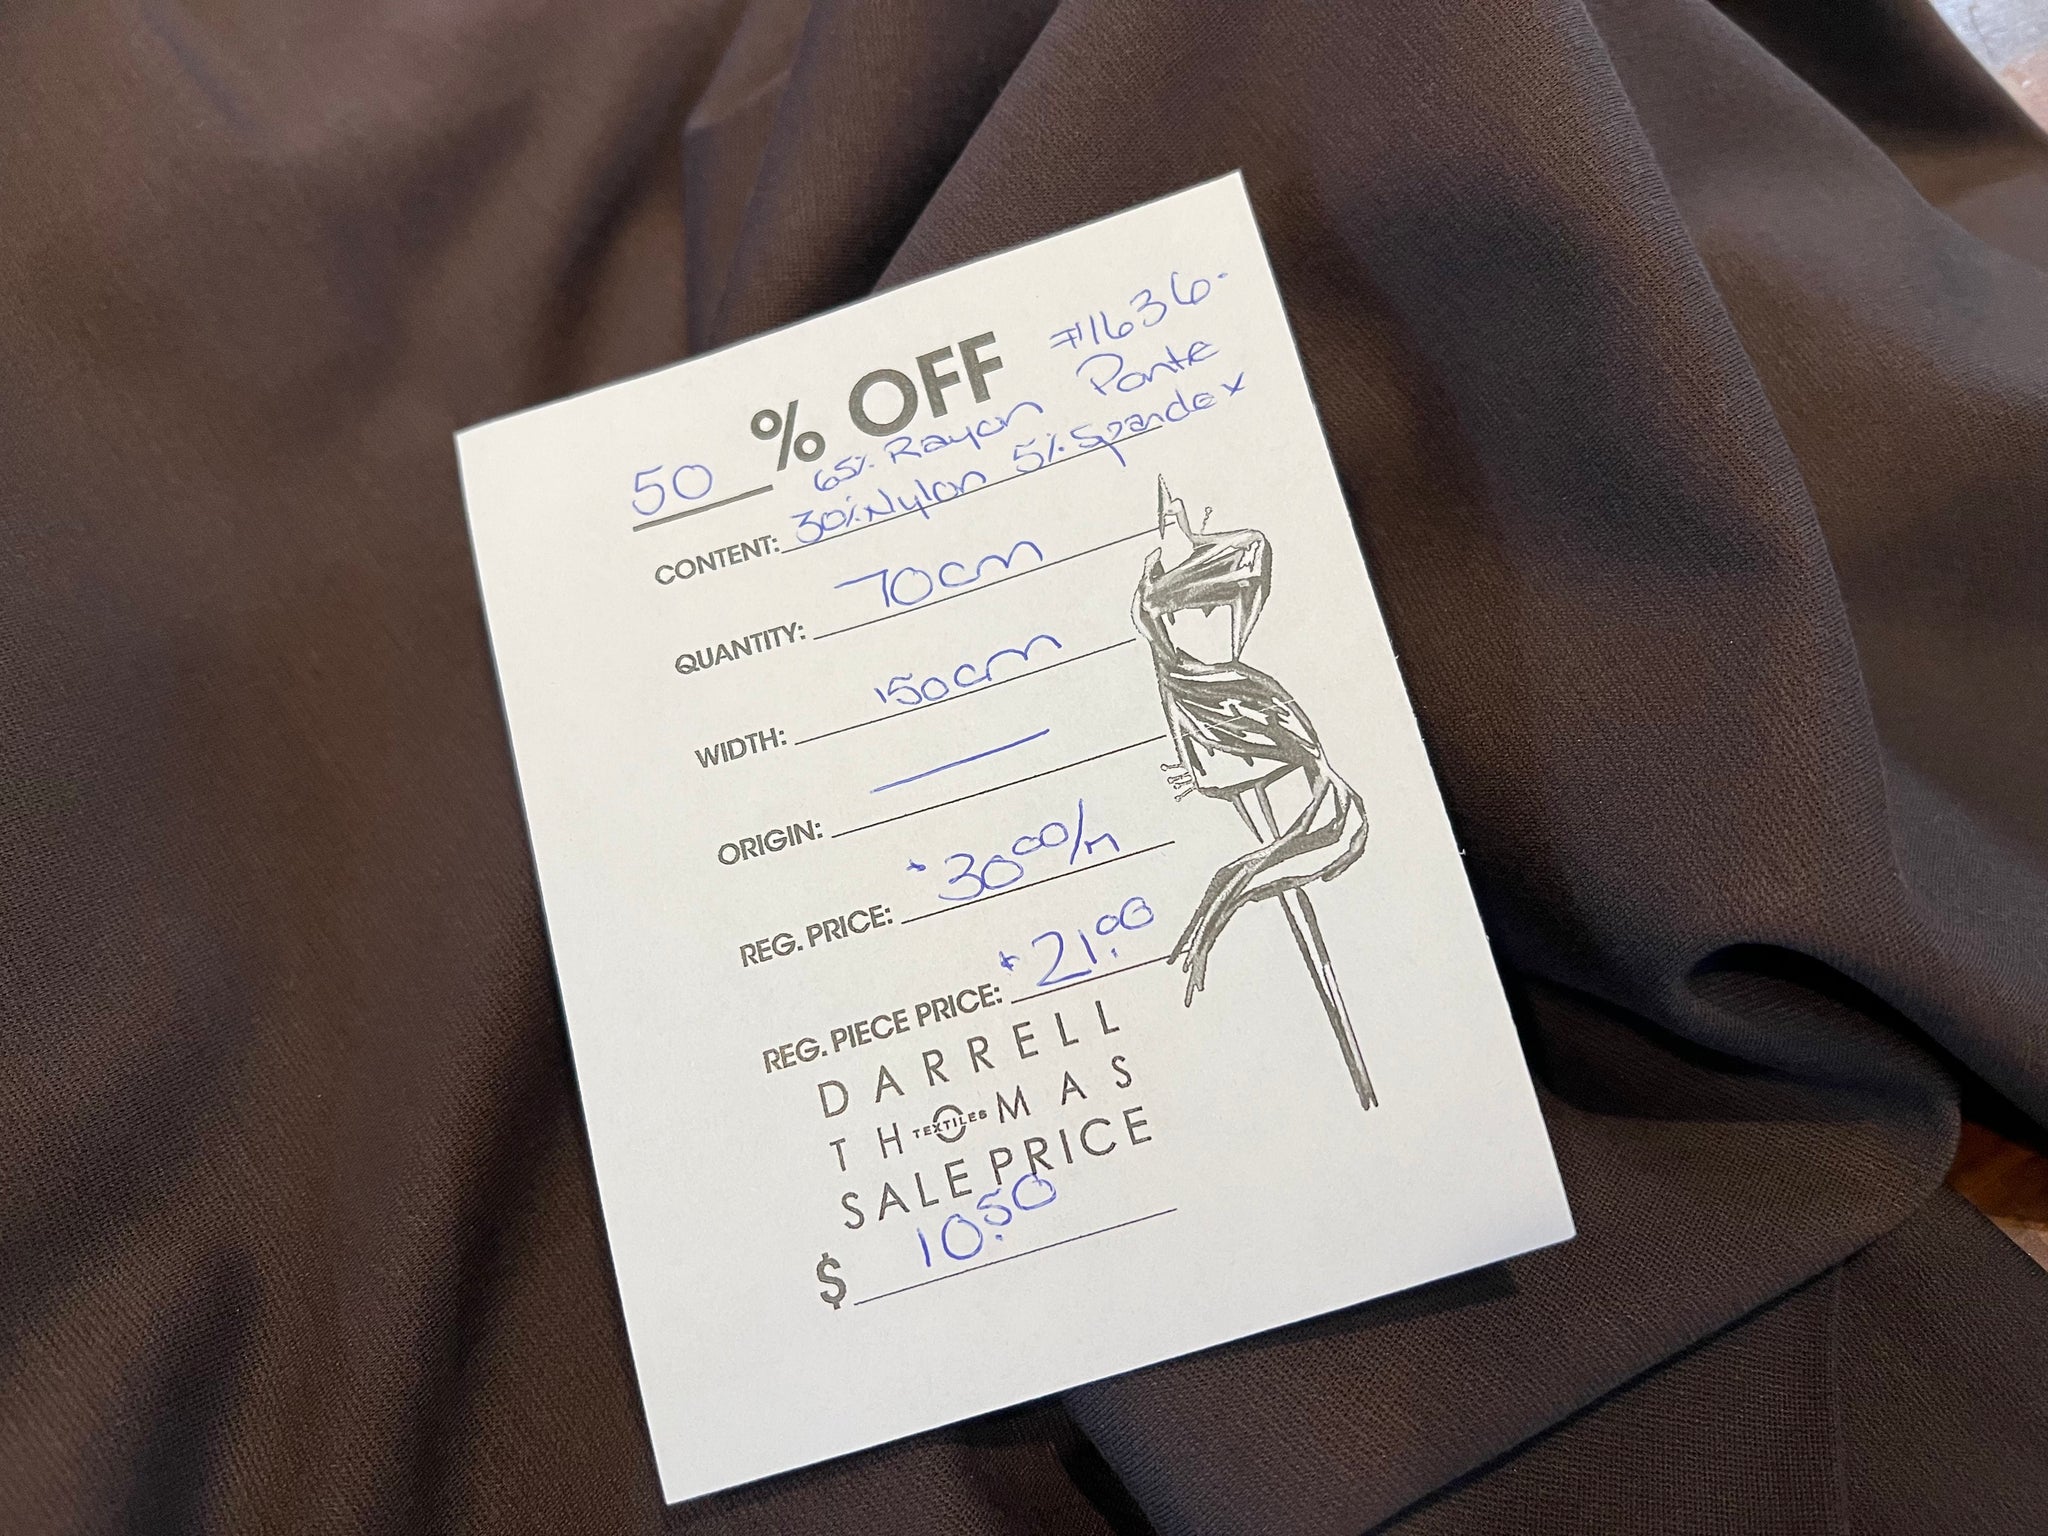 #1636-
50 % OFF Ponte
65% Rayon
CONTENT: 30% Nylon 5% Spandex
QUANTITY: 70cm
WIDTH: 150cm
ORIGIN: —
REG. PRICE: $3000/m
REG. PIECE PRICE: $21.00
DARRELL
THOMAS
TEXTILES
SALE PRICE
$ 10.50